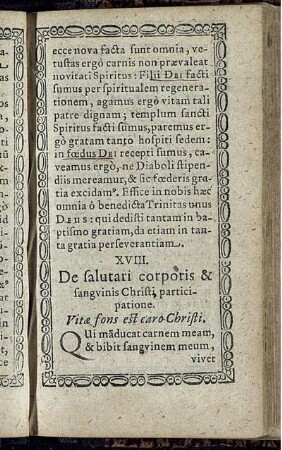 ecce nova facta sunt omnia, ve-
tustas ergò carnis non prævaleat
novitati Spiritus: Filii DEI facti
sumus per spiritualem regenera-
tionem, agamus ergò vitam tali
patre dignam; templum sancti
Spiritus facti sumus, paremus er-
gò gratam tanto hospiti sedem:
in fœdus DEI recepti sumus, ca-
veamus ergò, ne Diaboli stipen-
diis mereamur, & sic fœderis gra-
tia excidamꝰ. Effice in nobis hæc
omnia ô benedicta Trinitas unus
DEUS: qui dedisti tantam in ba-
ptismo gratiam, da etiam in tan-
ta gratia perseverantiam.
XVIII.
De salutari corporis &
sangvinis Christi, partici-
patione.
Vitæ fons est caro Christi.
QUi māducat carnem meam,
& bibit sangvinem meum,
vivet